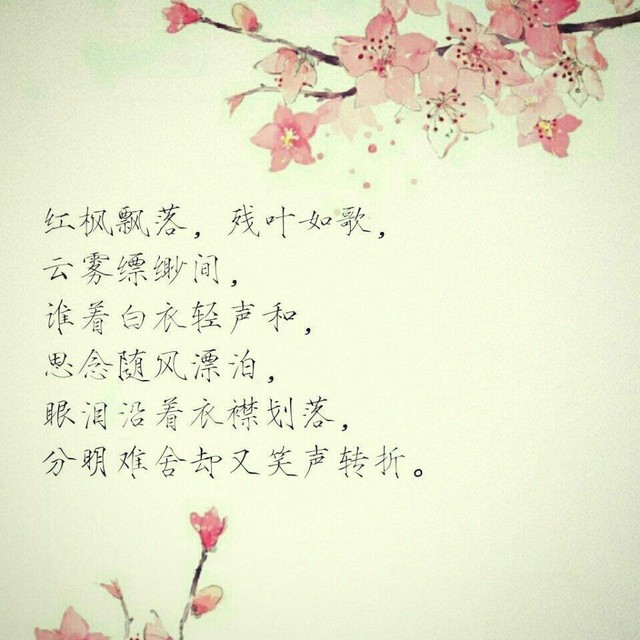 红枫飘落，残叶如歌，
云雾缥缈间，
谁着白衣轻声和，
思念随风漂泊，
眼泪沿着衣襟划落，
分明难舍却又笑声转折。